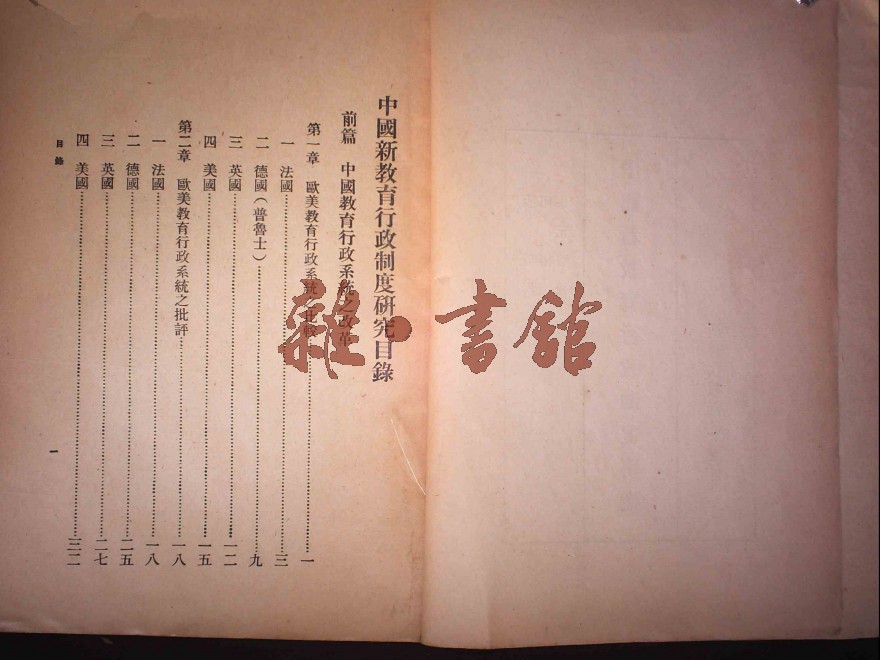 中國新教育行政制度研究目錄
前篇　中國教育行政系統之改革
第一章　歐美教育行政系統之比較……一
一　法國……三
二　德國（普魯士）……九
三　英國……一二
四　美國……一五
第二章　歐美教育行政系統之批評……一八
一　法國……一八
二　德國……二五
三　英國……二七
四　美國……三二
目錄
一
雜·書館